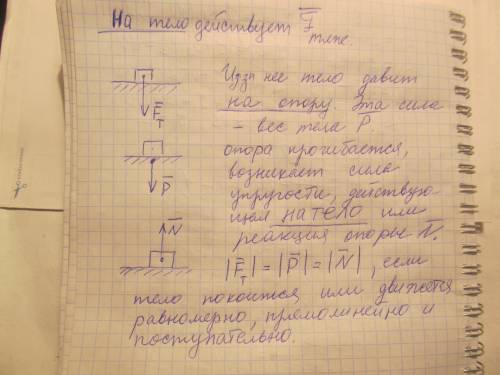 На тело действует F̅ тяж.
Из-за нее тело давит
на опору. Эта сила
F̅т
– вес тела P̅.
опора прогибается,
возникает сила
P̅
упругости, действую-
щая на тело или
N̅
реакция опоры N̅.
|F̅т| = |P̅| = |N̅|, если
тело покоится или движется
равномерно, прямолинейно и
поступательно.